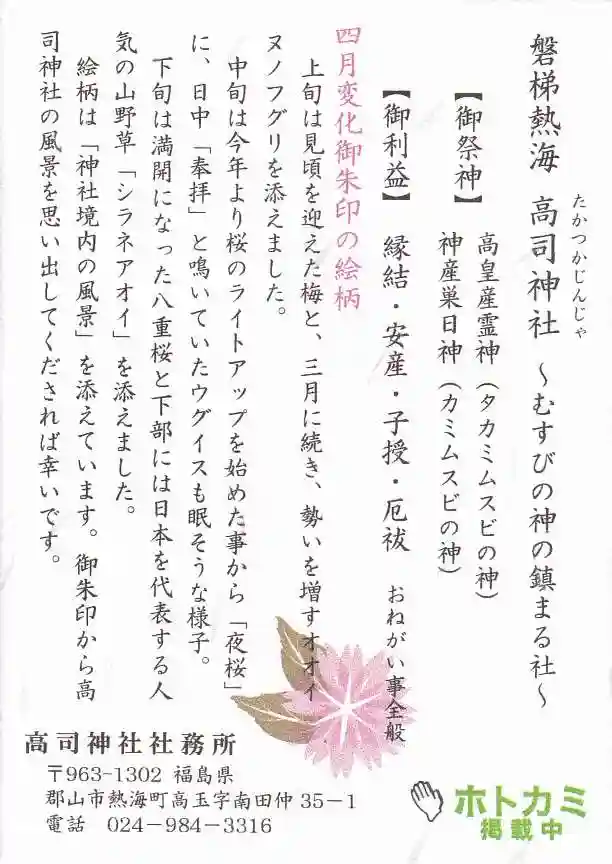 磐梯熱海 高司神社 ～むすびの神の鎮まる社～
たかつかじんじゃ
【御祭神】 高皇産霊神（タカミムスビの神）
神産巣日神（カミムスビの神）
【御利益】 縁結・安産・子授・厄祓 おねがい事全般
四月変化御朱印の絵柄
上旬は見頃を迎えた梅と、三月に続き、勢いを増すオオイ
ヌノフグリを添えました。
中旬は今年より桜のライトアップを始めた事から「夜桜」
に、日中「奉拝」と鳴いていたウグイスも眠そうな様子。
下旬は満開になった八重桜と下部には日本を代表する人
気の山野草「シラネアオイ」を添えました。
絵柄は「神社境内の風景」を添えています。御朱印から高
司神社の風景を思い出してくだされば幸いです。
高司神社社務所
〒963-1302 福島県
郡山市熱海町高玉字南田仲35－1
電話 024－984－3316
ホトカミ
掲載中